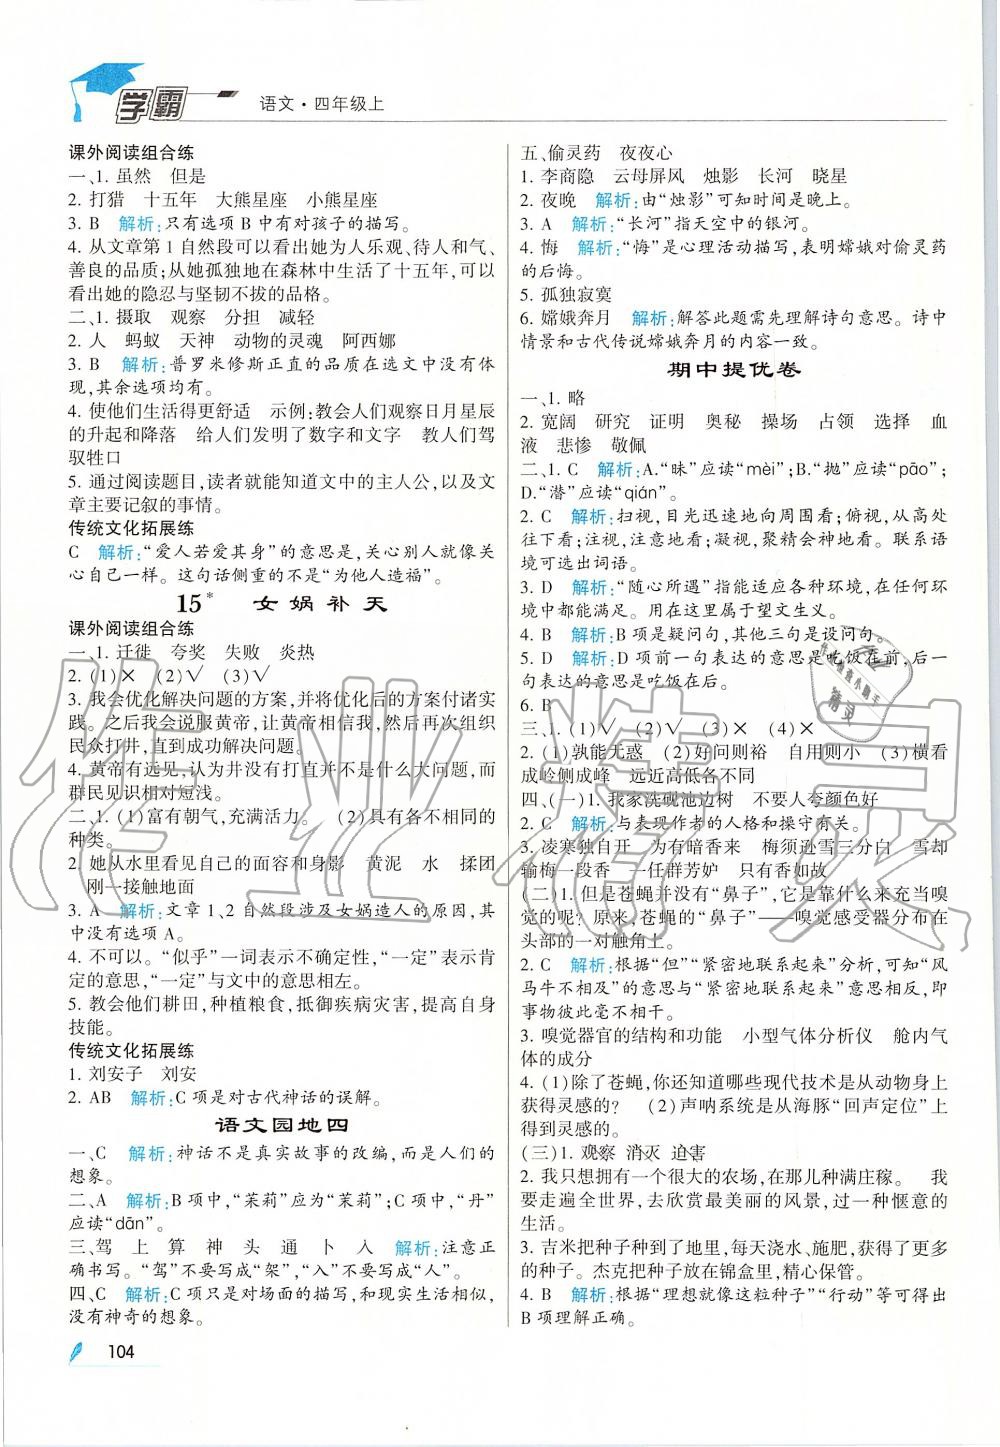 学霸 语文·四年级上
课外阅读组合练
一、1. 虽然 但是
2. 打猎 十五年 大熊星座 小熊星座
3. B 解析:只有选项 B 中有对孩子的描写。
4. 从文章第 1 自然段可以看出她为人乐观、待人和气、
善良的品质;从她孤独地在森林中生活了十五年,可以
看出她的隐忍与坚韧不拔的品格。
二、1. 摄取 观察 分担 减轻
2. 人 蚂蚁 天神 动物的灵魂 阿西娜
3. B 解析:普罗米修斯正直的品质在选文中没有体
现,其余选项均有。
4. 使他们生活得更舒适 示例:教会人们观察日月星辰
的升起和降落 给人们发明了数字和文字 教人们驾
驭牲口
5. 通过阅读题目,读者就能知道文中的主人公,以及文
章主要记叙的事情。
传统文化拓展练
C 解析:“爱人若爱其身”的意思是,关心别人就像关
心自己一样。这句话侧重的不是“为他人造福”。
15* 女娲补天
课外阅读组合练
一、1. 迁徙 夸奖 失败 炎热
2. (1)× (2)√ (3)√
3. 我会优化解决问题的方案,并将优化后的方案付诸实
践。之后我会说服黄帝,让黄帝相信我,然后再次组织
民众打井,直到成功解决问题。
4. 黄帝有远见,认为井没有打直并不是什么大问题,而
群民见识相对短浅。
二、1. (1)富有朝气,充满活力。 (2)具有各不相同的
种类。
2. 她从水里看见自己的面容和身影 黄泥 水 揉团
刚一接触地面
3. A 解析:文章 1、2 自然段涉及女娲造人的原因,其
中没有选项 A。
4. 不可以。“似乎”一词表示不确定性,“一定”表示肯
定的意思,“一定”与文中的意思相左。
5. 教会他们耕田,种植粮食,抵御疾病灾害,提高自身
技能。
传统文化拓展练
1. 刘安子 刘安
2. AB 解析:C 项是对古代神话的误解。
语文园地四
一、C 解析:神话不是真实故事的改编,而是人们的
想象。
二、A 解析:B 项中,“茉莉”应为“茉莉”;C 项中,“丹”
应读“dān”。
三、驾 上 算 神 头 通 卜 入 解析:注意正
确书写。“驾”不要写成“架”,“入”不要写成“人”。
四、C 解析:C 项只是对场面的描写,和现实生活相似,
没有神奇的想象。
五、偷灵药 夜夜心
1. 李商隐 云母屏风 烛影 长河 晓星
2. 夜晚 解析:由“烛影”可知时间是晚上。
3. A 解析:“长河”指天空中的银河。
4. 悔 解析:“悔”是心理活动描写,表明嫦娥对偷灵药
的后悔。
5. 孤独寂寞
6. 嫦娥奔月 解析:解答此题需先理解诗句意思。诗中
情景和古代传说嫦娥奔月的内容一致。
期中提优卷
一、1. 略
2. 宽阔 研究 证明 奥秘 操场 占领 选择 血
液 悲惨 敬佩
二、1. C 解析:A.“昧”应读“mèi”;B.“抛”应读“pāo”;
D.“潜”应读“qián”。
2. C 解析:扫视,目光迅速地向周围看;俯视,从高处
往下看;注视,注意地看;凝视,聚精会神地看。联系语
境可选出词语。
3. D 解析:“随心所遇”指能适应各种环境,在任何环
境中都能满足。用在这里属于望文生义。
4. B 解析:B 项是疑问句,其他三句是设问句。
5. D 解析:D 项前一句表达的意思是吃饭在前,后一
句表达的意思是吃饭在后。
6. B
三、1. (1)√ (2)√ (3)× (4)×
2. (1)孰能无惑 (2)好问则裕 自用则小 (3)横看
成岭侧成峰 远近高低各不同
四、(一)1. 我家洗砚池边树 不要人夸颜色好
2. C 解析:与表现作者的人格和操守有关。
3. 凌寒独自开 为有暗香来 梅须逊雪三分白 雪却
输梅一段香 一任群芳妒 只有香如故
(二)1. 但是苍蝇并没有“鼻子”,它是靠什么来充当嗅
觉的呢? 原来,苍蝇的“鼻子”——嗅觉感受器分布在
头部的一对触角上。
2. C 解析:根据“但”“紧密地联系起来”分析,可知“风
马牛不相及”的意思与“紧密地联系起来”意思相反,即
事物彼此毫不相干。
3. 嗅觉器官的结构和功能 小型气体分析仪 舱内气
体的成分
4. (1)除了苍蝇,你还知道哪些现代技术是从动物身上
获得灵感的? (2)声呐系统是从海豚“回声定位”上
得到灵感的。
(三)1. 观察 消灭 迫害
2. 我只想拥有一个很大的农场,在那儿种满庄稼。 我
要走遍全世界,去欣赏最美丽的风景,过一种惬意的
生活。
3. 吉米把种子种到了地里,每天浇水、施肥,获得了更多
的种子。杰克把种子放在锦盒里,精心保管。
4. B 解析:根据“理想就像这粒种子”“行动”等可得出
B 项理解正确。
104
作业精灵